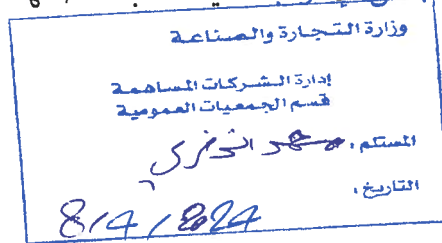 وزارة التجارة والصناعة
إدارة الشركات المساهمة
قسم الجمعيات العمومية
المستلم :
التاريخ :
8/4/2024